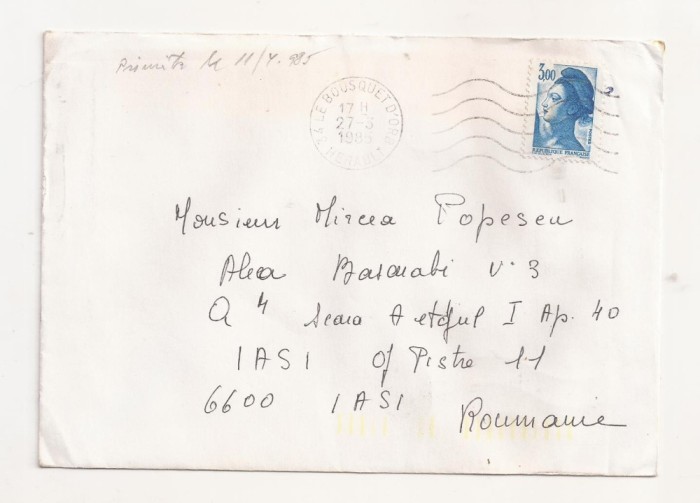 Primită la 11/4.985
34 LE BOUSQUET D'ORB
17 H
27-3
1985
HERAULT
3,00
2
REPUBLIQUE FRANÇAISE
Monsieur Mircea Popescu
Alea Basarabi v. 3
Q 4 scara A etajul I Ap. 40
IASI of Pistre 11
6600 IASI
Roumanie